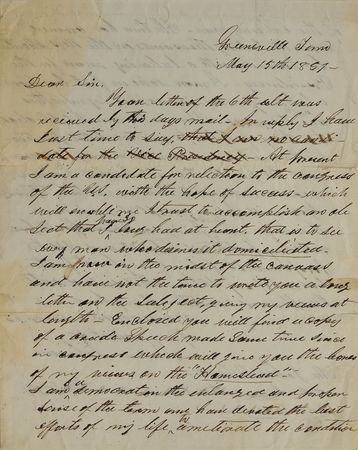 Greeneville Tenn
May 15th 1851-
Dear Sir.
Your letter of the 6th ult was
received by this days mail. In reply I have
Just time to say, that I am no candi-
date for the Vice Presidency - At present
I am a candidate for relection to the congress
of the U.S. with the hope of success - which
will enable me I trust to accomplish an ob
ject that I have so long had at heart, that is to see
every man who desires it domiciliated.
I am now in the midst of the canvass
and have not the time to write you a long
letter on the subject, giving my views at
length - Enclosed you will find a copy
of a crude Speech made some time since
in congress which will give you the
of my views on the "Homestead"
I am a democrat in the enlarged and proper
sense of the term and have devoted the best
efforts of my life, to ameliorate the condition